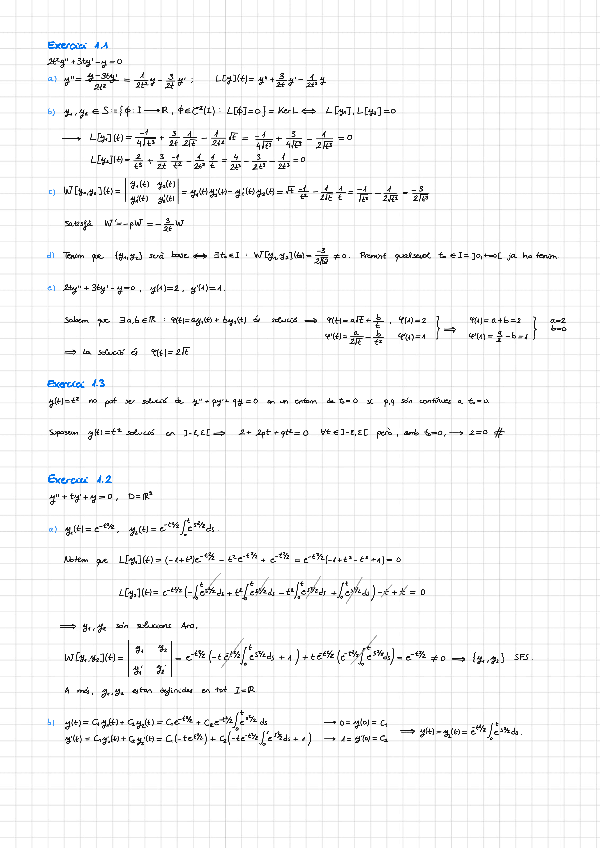 Exercici 1.1
2t²y'' + 3ty' - y = 0
a) y'' = (y - 3ty')/2t² = 1/2t² y - 3/2t y' ; L[y](t) = y'' + 3/2t y' - 1/2t² y
b) y₁, y₂ ∈ S := {ϕ: I → ℝ, ϕ ∈ C²(I) : L[ϕ] = 0} = Ker L ⟺ L[y₁], L[y₂] = 0
⟶ L[y₁](t) = -1/4√t³ + 3/2t 1/2√t - 1/2t² √t = -1/4√t³ + 3/4√t³ - 1/2√t³ = 0
L[y₂](t) = 2/t³ + 3/2t -1/t² - 1/2t² 1/t = 4/2t³ - 3/2t³ - 1/2t³ = 0
c) W[y₁,y₂](t) = | y₁(t) y₂(t) ; y₁'(t) y₂'(t) | = y₁(t)y₂'(t) - y₁'(t)y₂(t) = √t -1/t² - 1/2√t 1/t = -1/√t³ - 1/2√t³ = -3/2√t³
Satisfà W' = -pW = -3/2t W
d) Tenim que {y₁,y₂} serà base ⟺ ∃t₀ ∈ I : W[y₁,y₂](t₀) = -3/2√t₀³ ≠ 0. Prenent qualsevol t₀ ∈ I = ]0,+∞[ ja ho tenim.
e) 2ty'' + 3ty' - y = 0, y(1) = 2, y'(1) = 1.
Sabem que ∃a,b ∈ ℝ : φ(t) = ay₁(t) + by₂(t) és solució ⟹ φ(t) = a√t + b/t, φ(1) = 2 } ⟹ φ(1) = a + b = 2 } a = 2
φ'(t) = a/2√t - b/t² φ'(1) = 1 φ'(1) = a/2 - b = 1 b = 0
⟹ La solució és φ(t) = 2√t
Exercici 1.3
y(t) = t² no pot ser solució de y'' + py' + qy = 0 en un entorn de t₀ = 0 si p,q són contínues a t₀ = 0.
Suposem y(t) = t² solució en ]-ε,ε[ ⟹ 2 + 2pt + qt² = 0 ∀t ∈ ]-ε,ε[ però, amb t₀ = 0, ⟶ 2 = 0 #
Exercici 1.2
y'' + ty' + y = 0, D = ℝ³
a) y₁(t) = e^(-t²/2), y₂(t) = e^(-t²/2) ∫₀ᵗ e^(s²/2) ds.
Notem que L[y₁](t) = (-1+t²)e^(-t²/2) - t²e^(-t²/2) + e^(-t²/2) = e^(-t²/2)(-1 + t² - t² + 1) = 0
L[y₂](t) = e^(-t²/2)(-∫₀ᵗ e^(s²/2) ds + t²∫₀ᵗ e^(s²/2) ds - t²∫₀ᵗ e^(s²/2) ds + ∫₀ᵗ e^(s²/2) ds) - t + t = 0
⟹ y₁, y₂ són solucions. Ara,
W[y₁,y₂](t) = | y₁ y₂ ; y₁' y₂' | = e^(-t²/2)(-t e^(-t²/2)∫₀ᵗ e^(s²/2) ds + 1) + t e^(-t²/2)(e^(-t²/2)∫₀ᵗ e^(s²/2) ds) = e^(-t²/2) ≠ 0 ⟹ {y₁,y₂} SFS.
A més, y₁, y₂ estan definides en tot I = ℝ
b) y(t) = C₁y₁(t) + C₂y₂(t) = C₁e^(-t²/2) + C₂e^(-t²/2)∫₀ᵗ e^(s²/2) ds ⟶ 0 = y(0) = C₁ ⟹ y(t) = y₂(t) = e^(-t²/2)∫₀ᵗ e^(s²/2) ds.
y'(t) = C₁y₁'(t) + C₂y₂'(t) = C₁(-te^(-t²/2)) + C₂(-te^(-t²/2)∫₀ᵗ e^(s²/2) ds + 1) ⟶ 1 = y'(0) = C₂